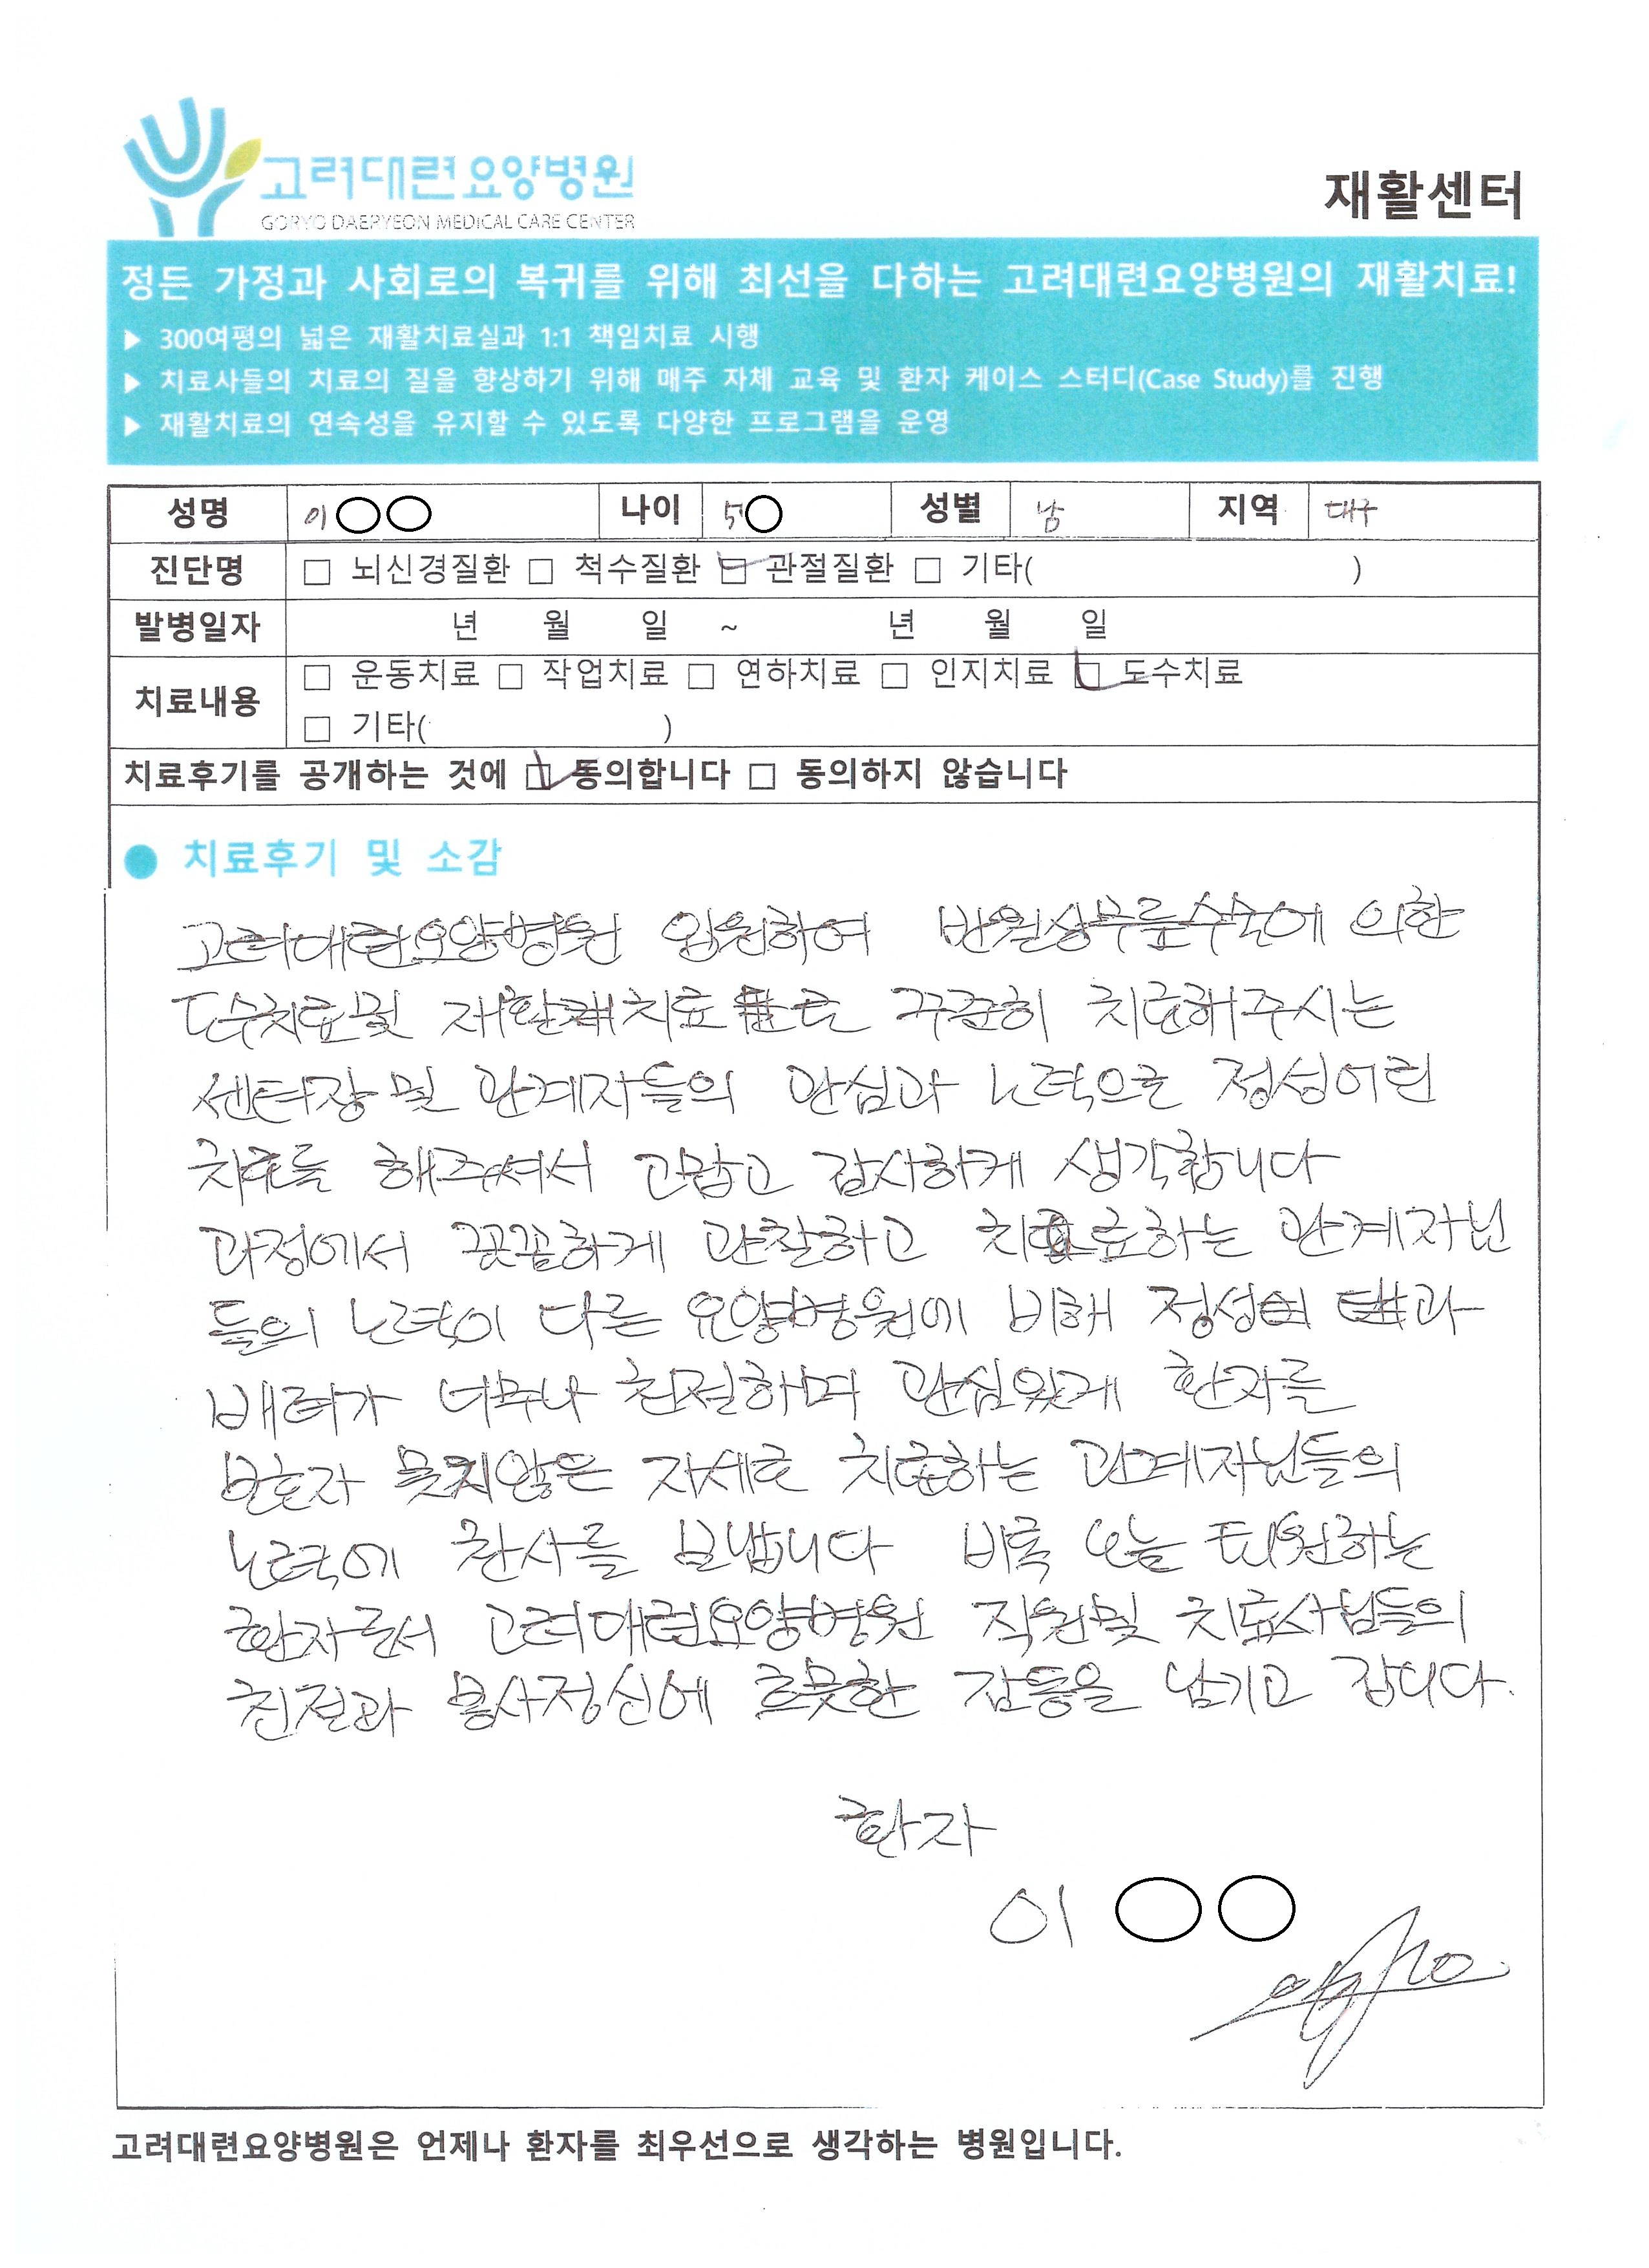 고려대련요양병원
GORYO DAERYEON MEDICAL CARE CENTER
재활센터
정든 가정과 사회로의 복귀를 위해 최선을 다하는 고려대련요양병원의 재활치료!
▶ 300여평의 넓은 재활치료실과 1:1 책임치료 시행
▶ 치료사들의 치료의 질을 향상하기 위해 매주 자체 교육 및 환자 케이스 스터디(Case Study)를 진행
▶ 재활치료의 연속성을 유지할 수 있도록 다양한 프로그램을 운영
성명 이○○ 나이 5○ 성별 남 지역 대구
진단명 □ 뇌신경질환 □ 척수질환 ☑ 관절질환 □ 기타( )
발병일자 년 월 일 ~ 년 월 일
치료내용 □ 운동치료 □ 작업치료 □ 연하치료 □ 인지치료 ☑ 도수치료
□ 기타( )
치료후기를 공개하는 것에 ☑ 동의합니다 □ 동의하지 않습니다
● 치료후기 및 소감
고려대련요양병원 입원하여 반월상무릎수술에 의한
도수치료및 재활 치료 꾸준히 치료해주시는
센터장 및 관계자들의 관심과 노력으로 정성어린
치료를 해주셔서 고맙고 감사하게 생각합니다
과정에서 꼼꼼하게 관찰하고 치료하는 관계자님
들의 노력이 다른 요양병원에 비해 정성 과
배려가 너무나 친절하며 관심있게 환자를
보호자 못지않은 자세로 치료하는 관계자님들의
노력에 찬사를 보냅니다 비록 오늘 퇴원하는
환자로서 고려대련요양병원 직원및 치료사님들의
친절과 봉사정신에 흐뭇한 감동을 남기고 갑니다.
환자
이 ○○
고려대련요양병원은 언제나 환자를 최우선으로 생각하는 병원입니다.